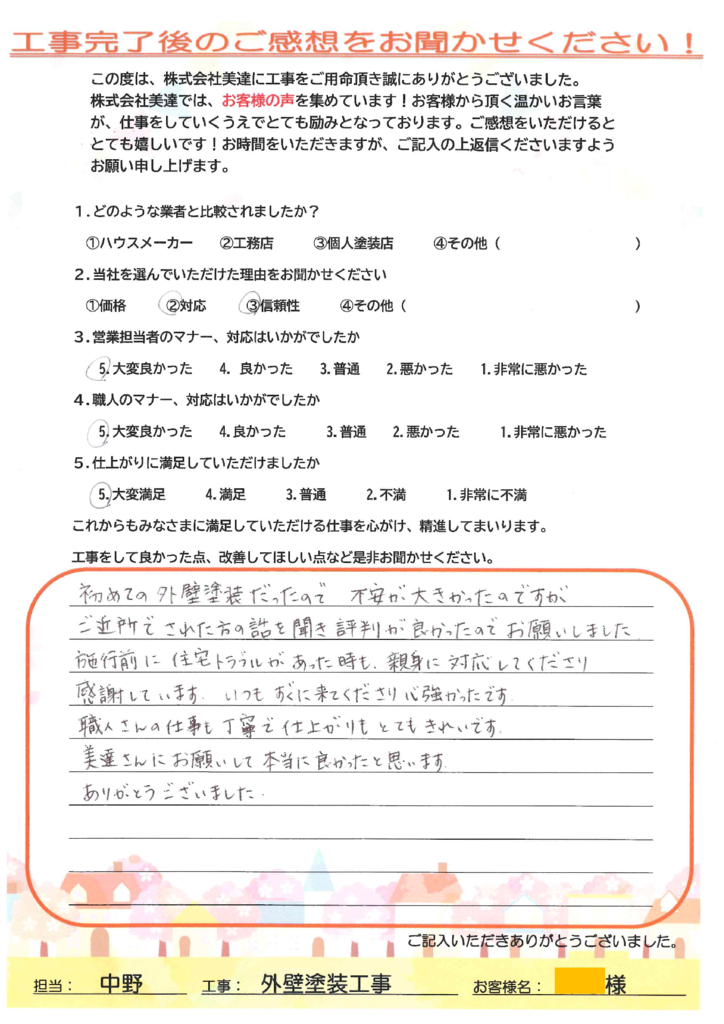 工事完了後のご感想をお聞かせください！
この度は、株式会社美達に工事をご用命頂き誠にありがとうございました。
株式会社美達では、お客様の声を集めています！お客様から頂く温かいお言葉
が、仕事をしていくうえでとても励みとなっております。ご感想をいただけると
とても嬉しいです！お時間をいただきますが、ご記入の上返信くださいますよう
お願い申し上げます。
1.どのような業者と比較されましたか？
①ハウスメーカー ②工務店 ③個人塗装店 ④その他（ ）
2.当社を選んでいただけた理由をお聞かせください
①価格 ②対応 ③信頼性 ④その他（ ）
3.営業担当者のマナー、対応はいかがでしたか
5.大変良かった 4. 良かった 3.普通 2.悪かった 1.非常に悪かった
4.職人のマナー、対応はいかがでしたか
5.大変良かった 4.良かった 3.普通 2.悪かった 1.非常に悪かった
5.仕上がりに満足していただけましたか
5.大変満足 4.満足 3.普通 2.不満 1.非常に不満
これからもみなさまに満足していただける仕事を心がけ、精進してまいります。
工事をして良かった点、改善してほしい点など是非お聞かせください。
初めての外壁塗装だったので 不安が大きかったのですが
ご近所でされた方の話を聞き評判が良かったのでお願いしました
施行前に住宅トラブルがあった時も、親身に対応してくださり
感謝しています。いつもすぐに来てくださり心強かったです。
職人さんの仕事も丁寧で仕上がりもとてもきれいです。
美達さんにお願いして本当に良かったと思います。
ありがとうございました。
ご記入いただきありがとうございました。
担当： 中野 工事： 外壁塗装工事 お客様名： 様